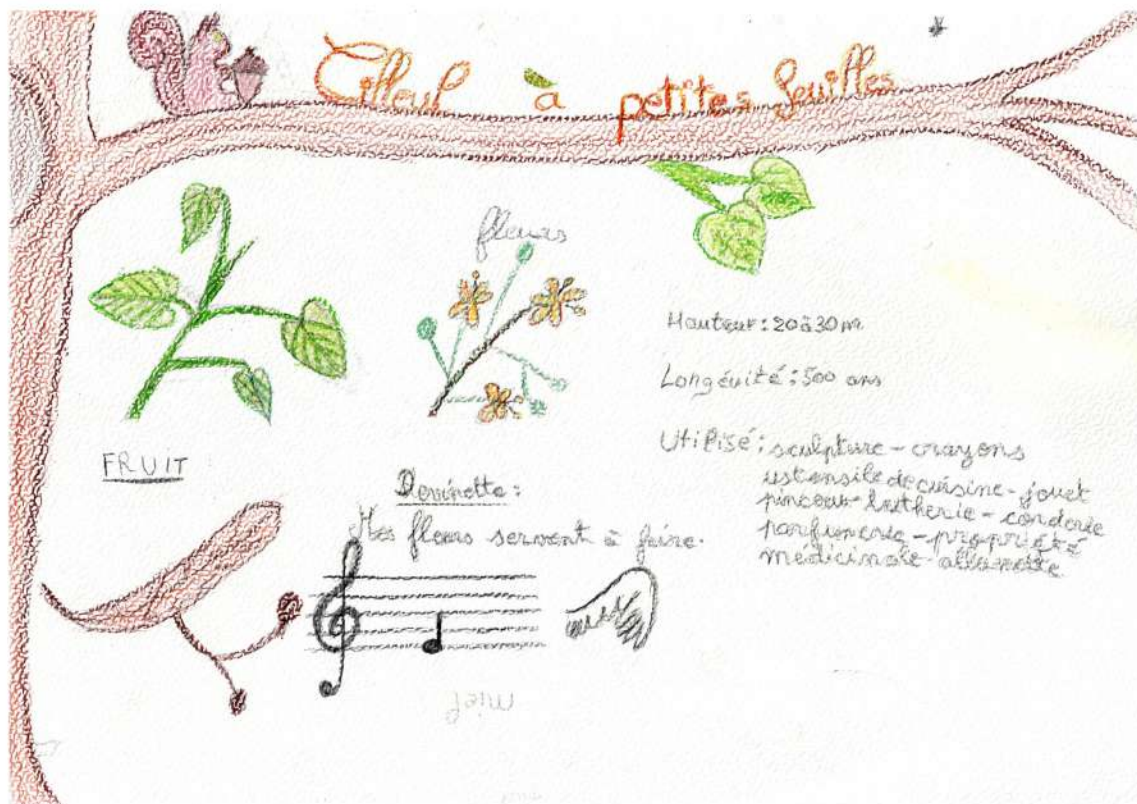 Tilleul à petites feuilles
fleurs
Hauteur : 20 à 30 m
Longévité : 500 ans
Utilisé : sculpture - crayons
ustensile de cuisine - jouet
pinceau - lutherie - corderie
parfumerie - propriété
médicinale - allumette
FRUIT
Devinette :
Mes fleurs servent à faire.
miel